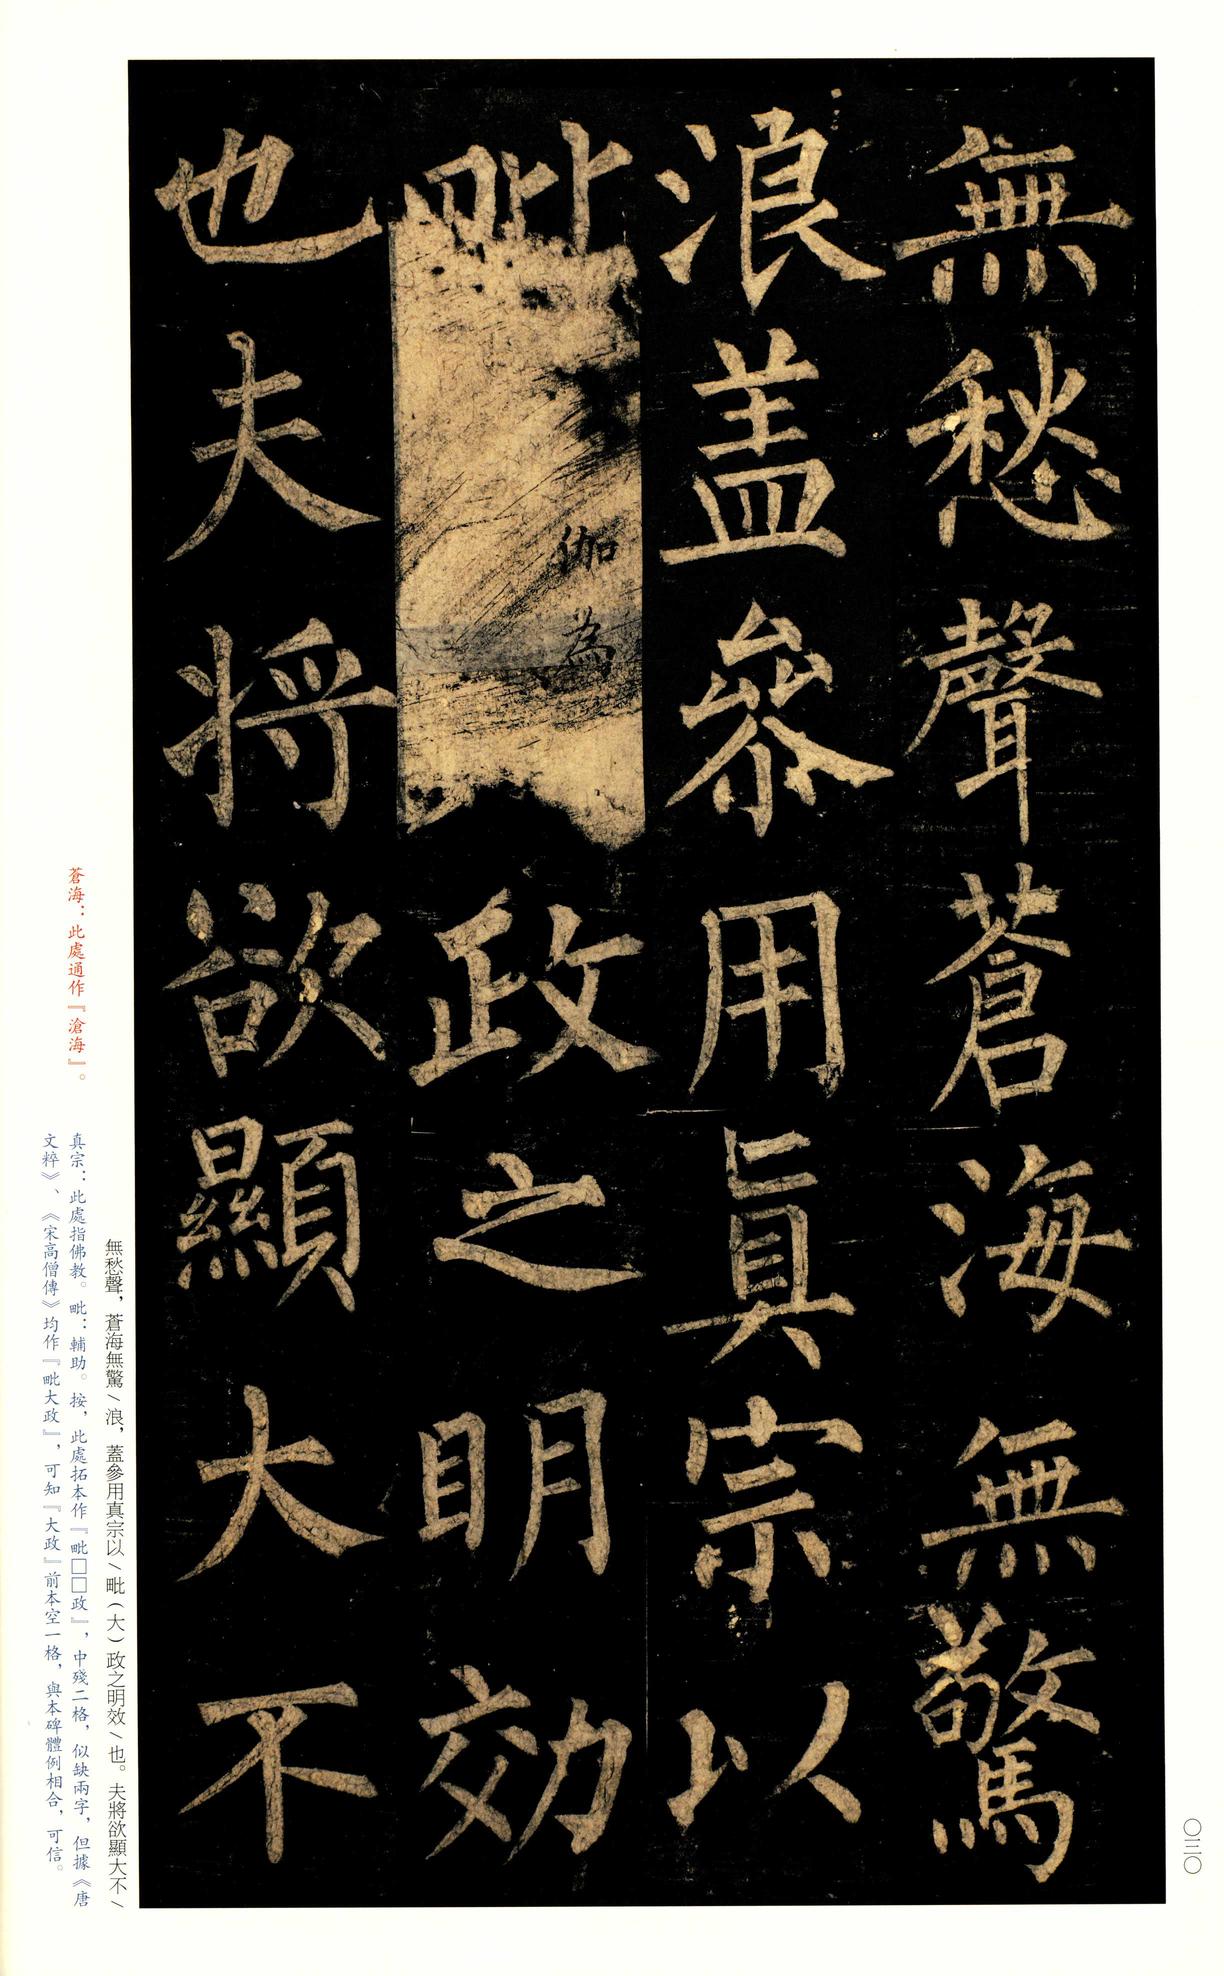 無愁聲蒼海無驚
浪盖參用真宗以
毗政之明効
伽為
也夫將欲顯大不
無愁聲，蒼海無驚/浪，蓋參用真宗以/毗（大）政之明效/也。夫將欲顯大不/
蒼海：此處通作『滄海』。
真宗：此處指佛教。毗：輔助。按，此處拓本作『毗□□政』，中殘二格，似缺兩字，但據《唐
文粹》、《宋高僧傳》均作『毗大政』，可知『大政』前本空一格，與本碑體例相合，可信。
〇三〇